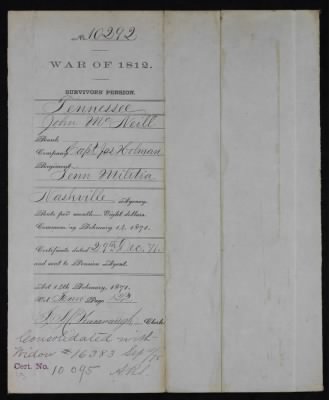 No. 10292
WAR OF 1812.
SURVIVORS' PENSION.
Tennessee
John McNeill
Rank
Company Capt Jas Holman
Regiment
Tenn Militia
Nashville Agency.
Rate per month Eight dollars.
Commencing February 14, 1871.
Certificate dated 27th
and sent to Pension Agent.
Act 14th February, 1871.
Vol. Page
Clerk
Consolidated with
Widow #16383 Sep
Cert. No.
10 095